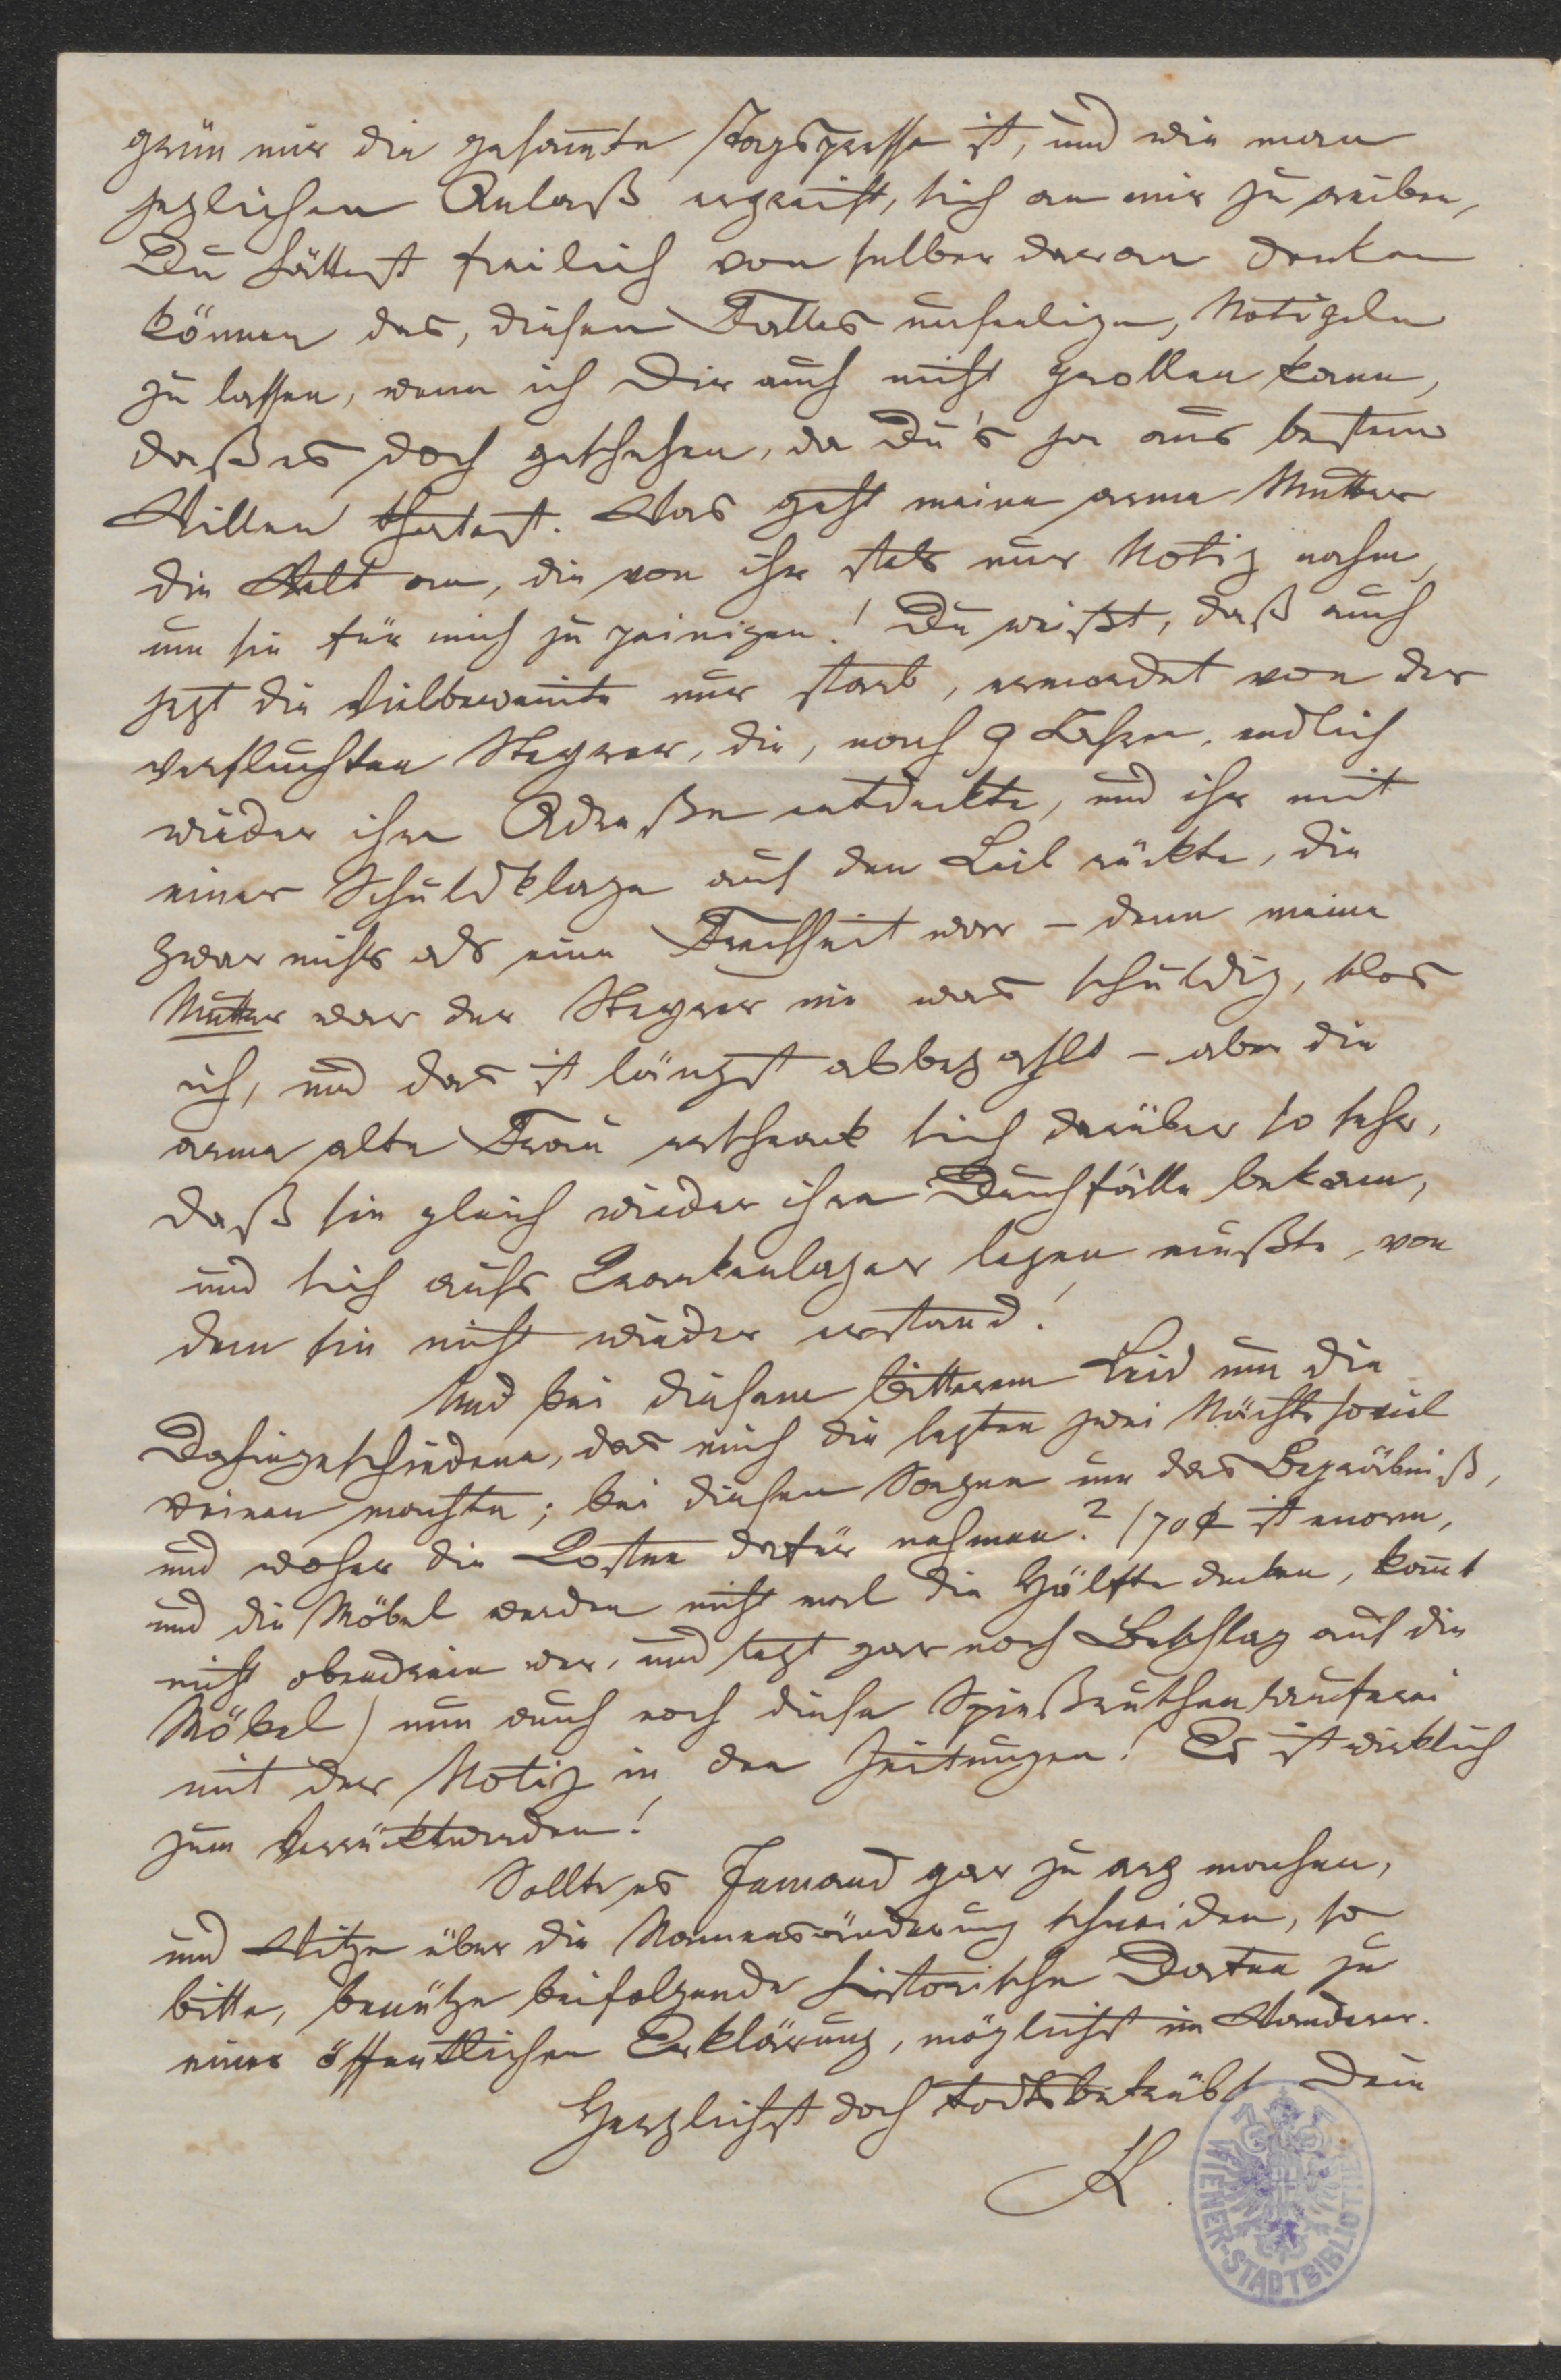 grün mir die gesam̅te Tagspresse ist, und wie man
jeglichen Anlaß ergreift, sich an mir zu reiben,
Du hättest freilich von selber daran denken
können das, diesen Falles unseelige, Notizeln
zu lassen, wenn ich Dir auch nicht grollen kann,
daß es doch geschehen, da Du's ja aus bestem
Willen thatest. Was geht meine arme Mutter
die Welt an, die von ihr stets nur Notiz nahm,
um sie für mich zu peinigen! Du weißt, daß auch
jezt die Vielbeweinte nur starb, ermordet von der
verfluchten Stegmar, die, nach 9 Jahren, endlich
wieder ihre Adreße entdeckte, und ihr mit
einer Schuldklage auf den Leib rückte, die
zwar nichts als eine Frechheit war – denn meine
Mutter war der Stegmar nie was schuldig, blos
ich, und das ist längst abbezahlt – aber die
arme alte Frau erschrack sich darüber so sehr,
daß sie gleich wieder ihre Durchfälle bekam,
und sich aufs Krankenlager legen mußte, von
dem sie nicht wieder erstand!
Und bei diesem bitterem Leid um die
Dahingeschiedene, das mich die lezten zwei Nächte soviel
weinen machte; bei diesen Sorgen um das Begräbniß,
und woher die Kosten dafür nehmen? (70 f ist enorm,
und die Möbel werden nicht mal die Hälfte decken, kom̅t
nicht obendrein wer, und legt gar noch Beschlag auf die
Möbel) nun auch noch diese Spießruthenlauferei
mit der Notiz in den Zeitungen! Es ist wirklich
zum Verrücktwerden!
Sollte es Jemand gar zu arg machen,
und Witze über die Namensänderung schneiden, so
bitte, benütze beifolgende historische Daten zu
einer öffentlichen Erklärung, möglichst im Wanderer.
Herzlichst doch todtsbetrübt Dein
K.
WIENER-STADTBIBLIOTHEK